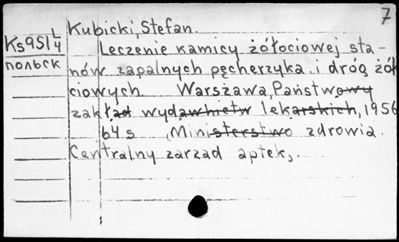 7
Kubicki, Stefan.
Ks951/4
польск
Leczenie kamicy żółociowej sta-
nów zapalnych pęcherzyka i dróg żół
ciowych. Warszawa, Państwowy
zakład wydawnictw lekarskich, 1956
64 s (Ministerstwo zdrowia.
Centralny zarzad aptek,.